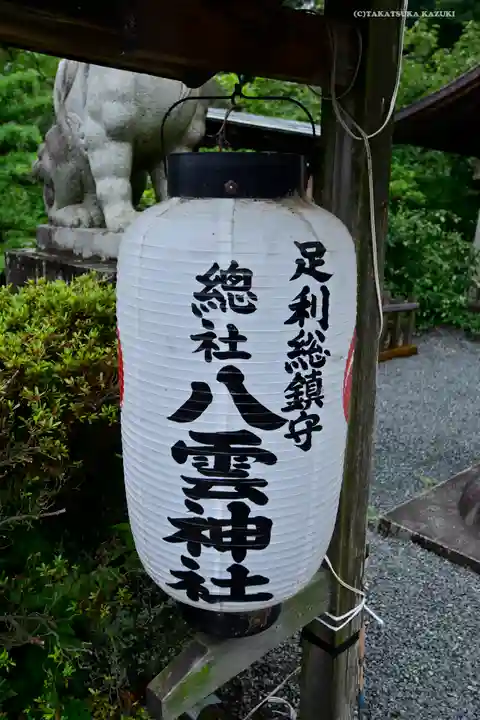 (C)TAKATSUKA KAZUKI
足利総鎮守
總社
八雲神社